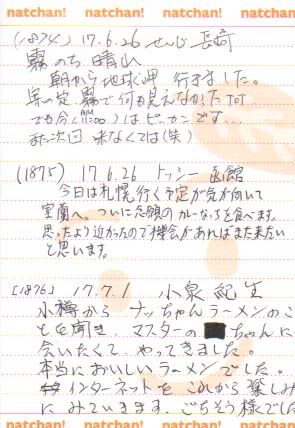 natchan! natchan! natchan! natchan!
(1874) 17.6.26 せんじ 長崎
霧のち晴れ
朝から地球岬 行きました。
案の定 霧で何も見えなかったけど
でも今(AM 11:00)はピーカンです...
また次回 来なくては(笑)
(1875) 17.6.26 トッシー 函館
今日は札幌行く予定が気が向いて
室蘭へ。ついに念願のカレーらーめんを食べます。
思ったより近かったので機会があればまた来たい
と思います。
[1876] 17.7.1 小泉 紀生
小樽から ナッちゃんラーメンのこ
とを聞き、マスターの ちゃんに
会いたくて、やってきました。
本当においしいラーメンでした。
インターネットを これから楽しみ
にみていきます。ごちそう様でした
natchan! natchan! natchan! natchan!